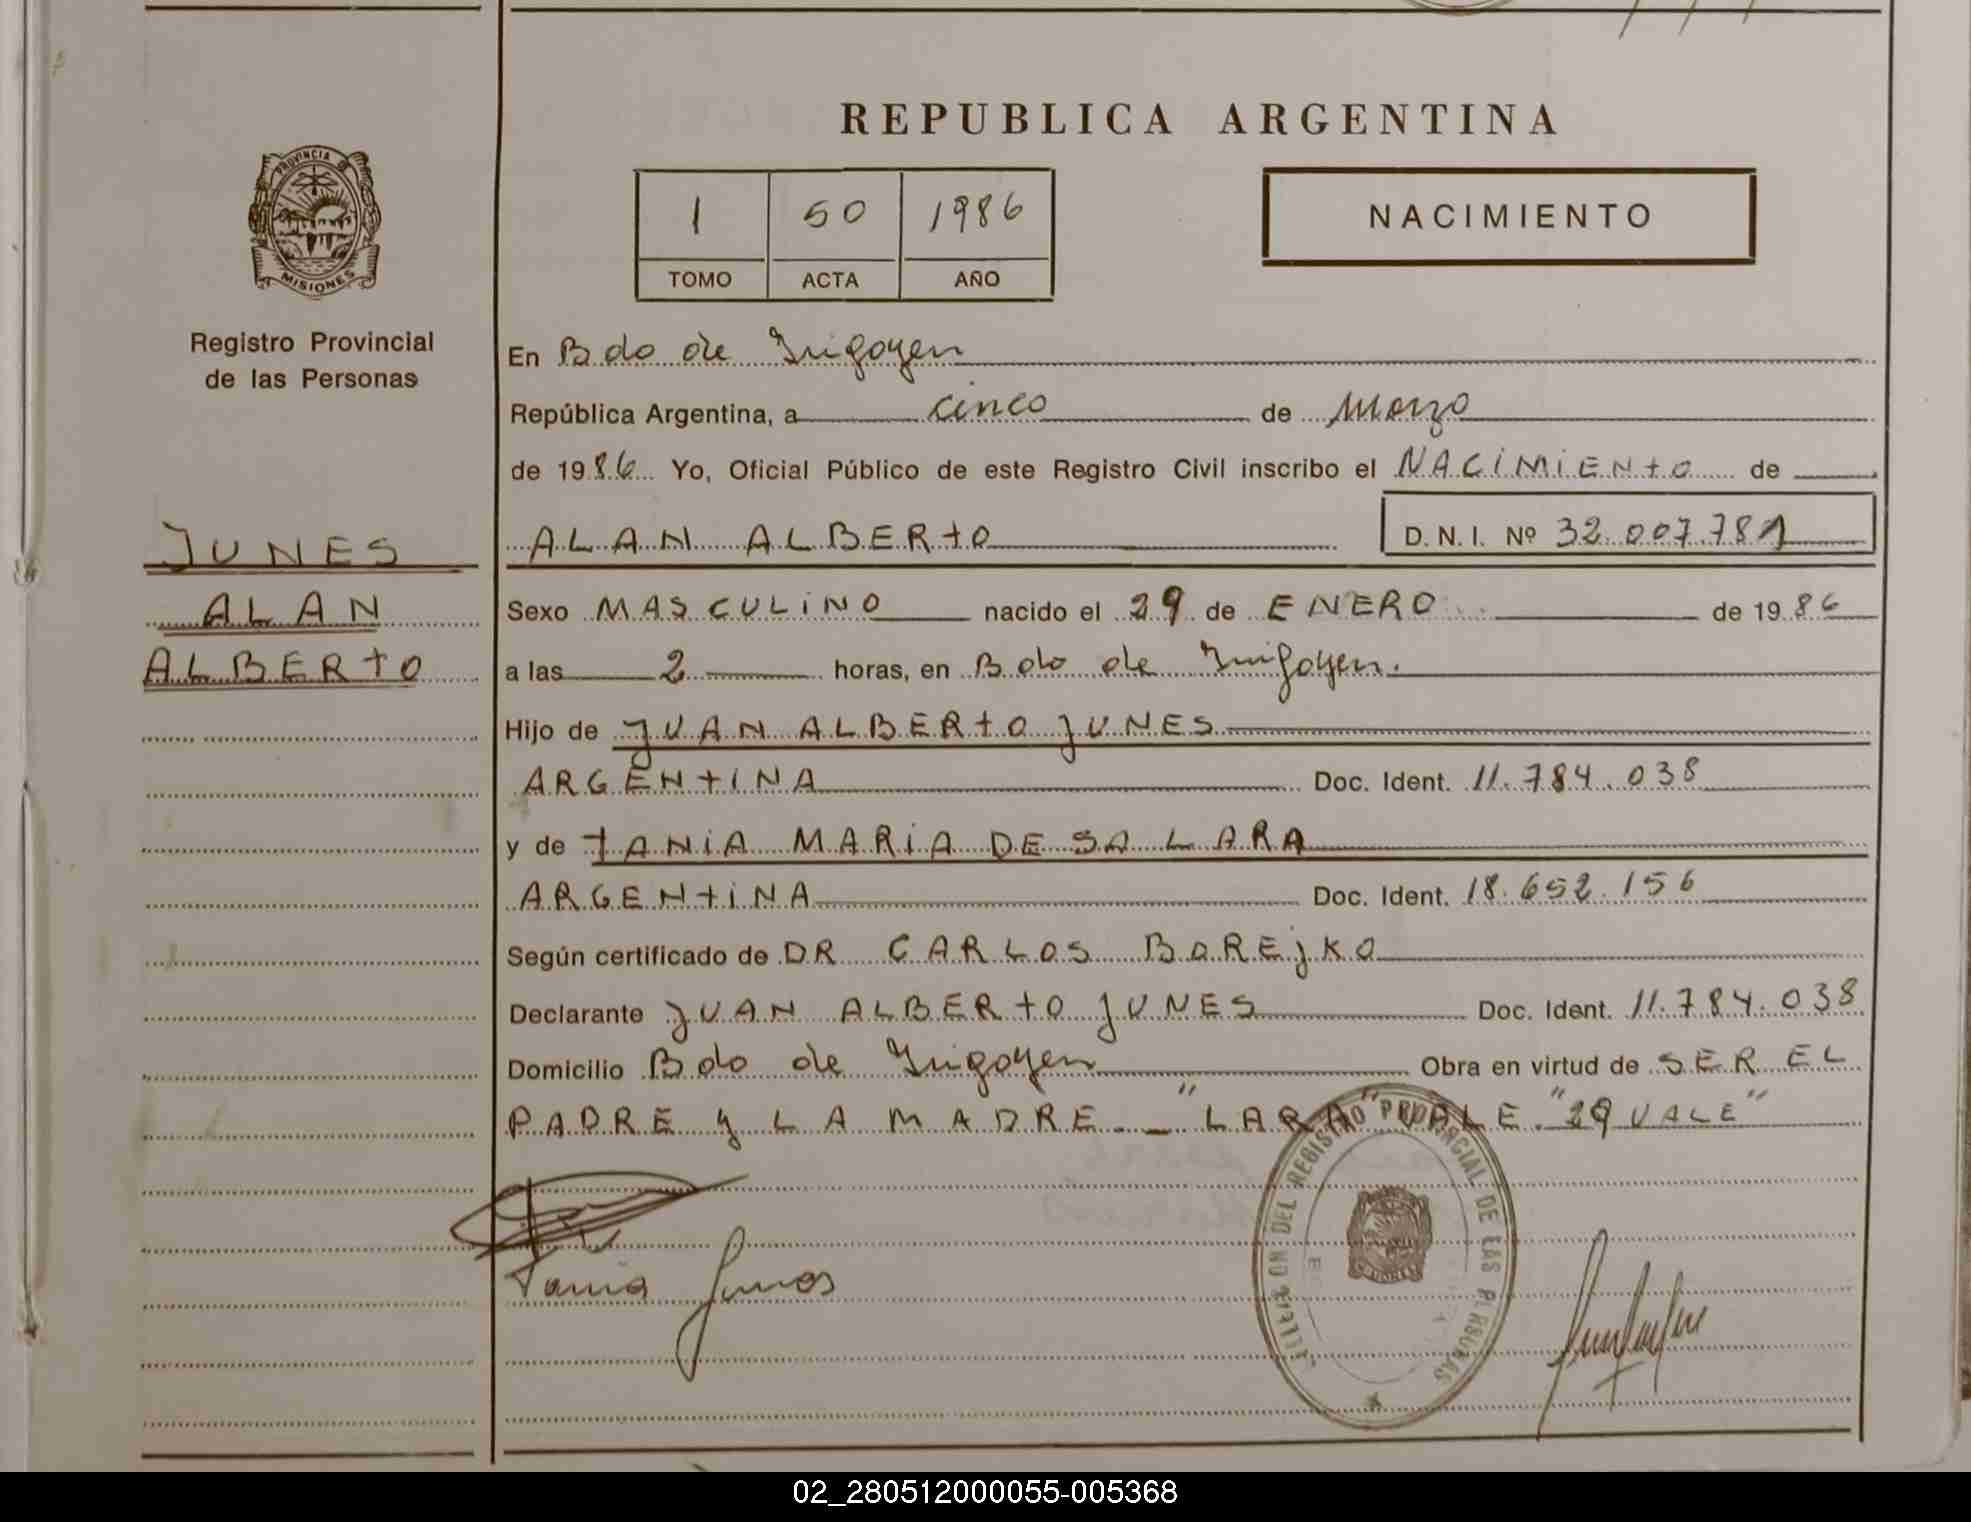 REPUBLICA ARGENTINA
PROVINCIA DE
MISIONES
1 50 1986
TOMO ACTA AÑO
NACIMIENTO
Registro Provincial
de las Personas
JUNES
ALAN
ALBERTO
En Bdo de Irigoyen
República Argentina, a cinco de Marzo
de 1986 Yo, Oficial Público de este Registro Civil inscribo el NACIMIENTO de
ALAN ALBERTO D. N. I. Nº 32.007.781
Sexo MASCULINO nacido el 29 de ENERO de 1986
a las 2 horas, en Bdo de Irigoyen.
Hijo de JUAN ALBERTO JUNES
ARGENTINA Doc. Ident. 11.784.038
y de TANIA MARIA DE SA LARA
ARGENTINA Doc. Ident. 18.652.156
Según certificado de DR CARLOS BOREJKO
Declarante JUAN ALBERTO JUNES Doc. Ident. 11.784.038
Domicilio Bdo de Irigoyen Obra en virtud de SER EL
PADRE y LA MADRE. _ "LARA" VALE "29 VALE"
DEL REGISTRO PROVINCIAL DE LAS PERSONAS
Tania Junes
02_280512000055-005368